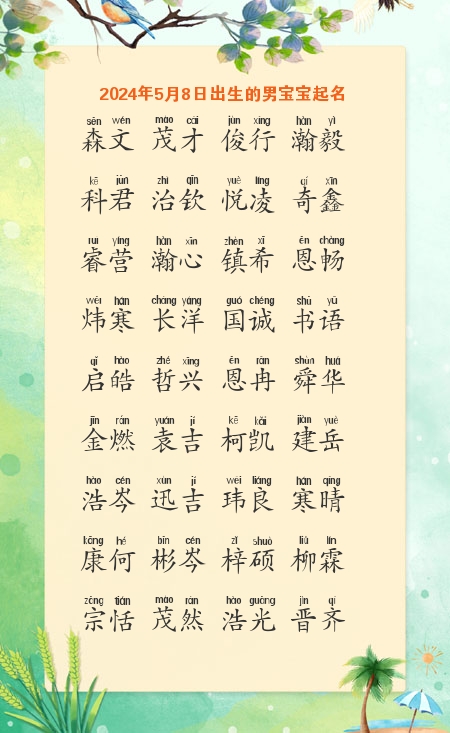 2024年5月8日出生的男宝宝起名
sēn wén mào cái jùn xíng hàn yì
森文 茂才 俊行 瀚毅
kē jūn zhì qīn yuè líng qí xīn
科君 治钦 悦凌 奇鑫
ruì yíng hàn xīn zhèn xī ēn chàng
睿营 瀚心 镇希 恩畅
wěi hán cháng yáng guó chéng shū yǔ
炜寒 长洋 国诚 书语
qǐ hào zhé xīng ēn rǎn shùn huá
启皓 哲兴 恩冉 舜华
jīn rán yuán jí kē kǎi jiàn yuè
金燃 袁吉 柯凯 建岳
hào cén xùn jí wěi liáng hán qíng
浩岑 迅吉 玮良 寒晴
kāng hé bīn cén zǐ shuò liǔ lín
康何 彬岑 梓硕 柳霖
zōng tián mào rán hào guāng jìn qí
宗恬 茂然 浩光 晋齐